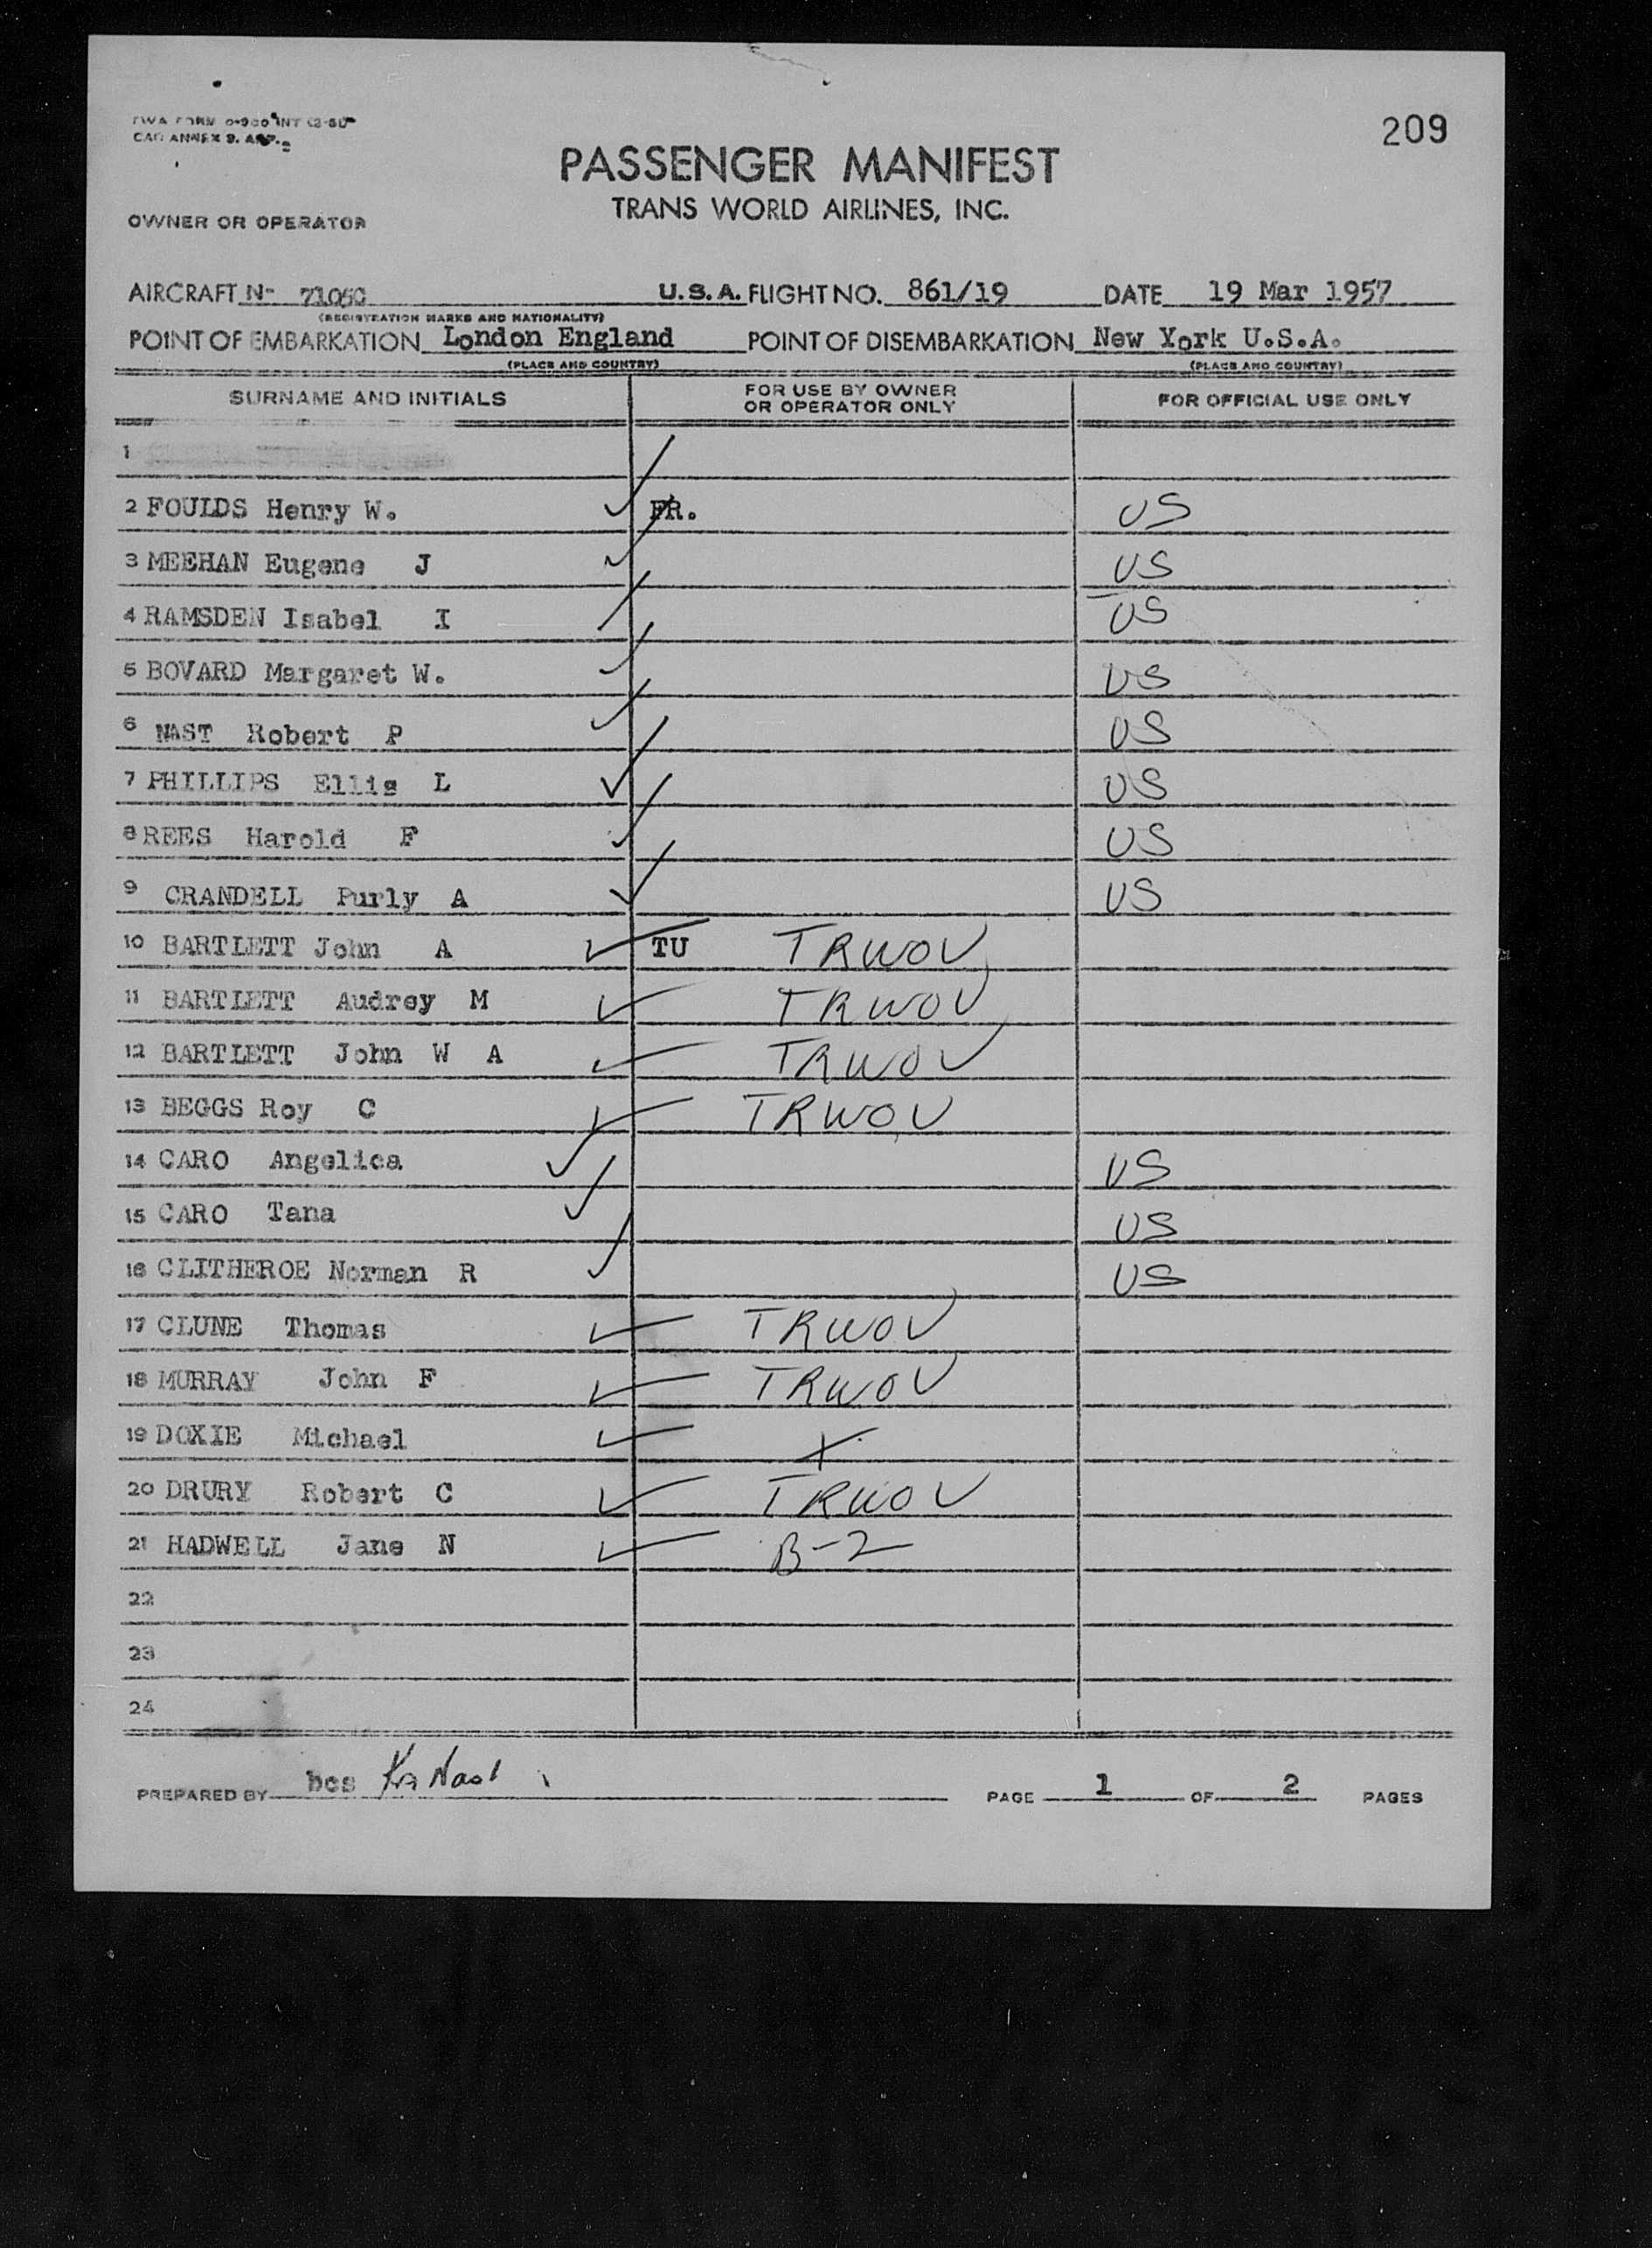 209
PASSENGER MANIFEST
TRANS WORLD AIRLINES, INC.
OWNER OR OPERATOR
AIRCRAFT N- U.S.A. FLIGHT NO. 861/19 DATE 19 Mar 1957
(REGISTRATION MARKS AND NATIONALITY)
POINT OF EMBARKATION London England POINT OF DISEMBARKATION New York U.S.A.
(PLACE AND COUNTRY) (PLACE AND COUNTRY)
SURNAME AND INITIALS FOR USE BY OWNER OR OPERATOR ONLY FOR OFFICIAL USE ONLY
1
2 FOULDS Henry W. FR. US
3 MEEHAN Eugene J US
4 RAMSDEN Isabel I US
5 BOVARD Margaret W. US
6 NAST Robert P US
7 PHILLIPS Ellis L US
8 REES Harold F US
9 CRANDELL Purly A US
10 BARTLETT John A TU TRWOV
11 BARTLETT Audrey M TRWOV
12 BARTLETT John W A TRWOV
13 BEGGS Roy C TRWOV
14 CARO Angelica US
15 CARO Tana US
16 CLITHEROE Norman R US
17 CLUNE Thomas TRWOV
18 MURRAY John F TRWOV
19 DOXIE Michael
20 DRURY Robert C TRWOV
21 HADWELL Jane N B-2
22
23
24
PREPARED BY hcs PAGE 1 OF 2 PAGES